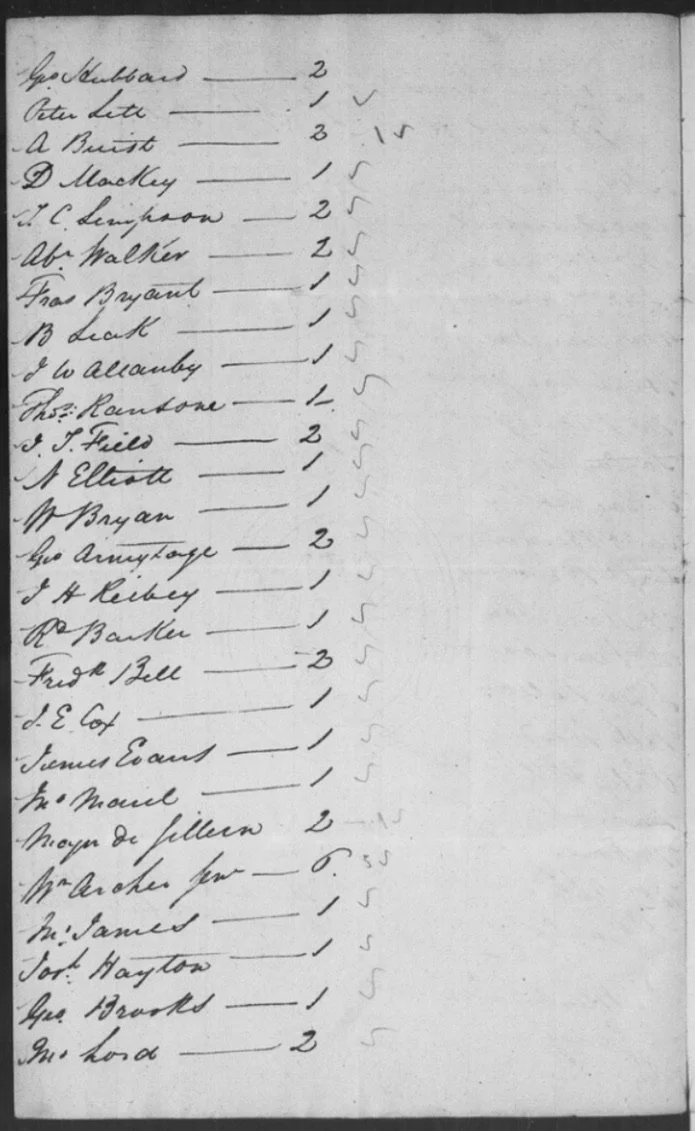 Geo Hubbard — 2
Peter Lett — 1
A Buist — 2 1
D Mackey — 1
T. C. Simpson — 2
Abm Walker — 2
Fras Bryant — 1
B Leak — 1
J W Allanby — 1
Thos. Ransone — 1
J. T. Field — 2
N Elliott — 1
W Bryan — 1
Geo Armytage — 2
J H Reibey — 1
Rd Barker — 1
Fredk Bell — 2
J. E. Cox — 1
James Evans — 1
Jno — 1
Major de Gillern 2
Wm Archer Senr — 6.
Mr James — 1
Josh Hayton — 1
Geo. Brooks — 1
Jno Lord — 2